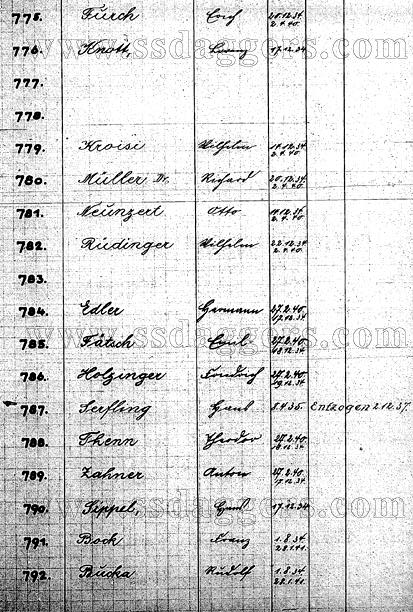 775. Fürch Erich 20.12.34. 2.4.40.
776. Knott, Georg 17.12.34
www.ssdaggers.com
777.
778.
779. Kroisi Wilhelm 19.12.34. 2.4.40.
780. Müller Dr. Richard 20.12.34. 2.4.40.
781. Neunzert Otto 19.12.34. 2.4.40.
782. Rüdinger Wilhelm 22.12.34 2.4.40.
783.
784. Edler Hermann 27.2.40. 17.12.34
www.ssdaggers.com
785. Fatsch Emil 27.2.40. 18.12.34
786. Holzinger Friedrich 27.2.40. 19.12.34
787. Serfling Hans 8.4.35. Entzogen 2.12.37.
788. Thenn Theodor 27.2.40. 18.12.34
789. Zahner Anton 27.2.40. 17.12.34.
790. Sippel, Hans 17.12.34
www.ssdaggers.com
791. Bock Franz 1.8.34 28.1.41.
792. Bucka Rudolf 1.8.34 28.1.41.